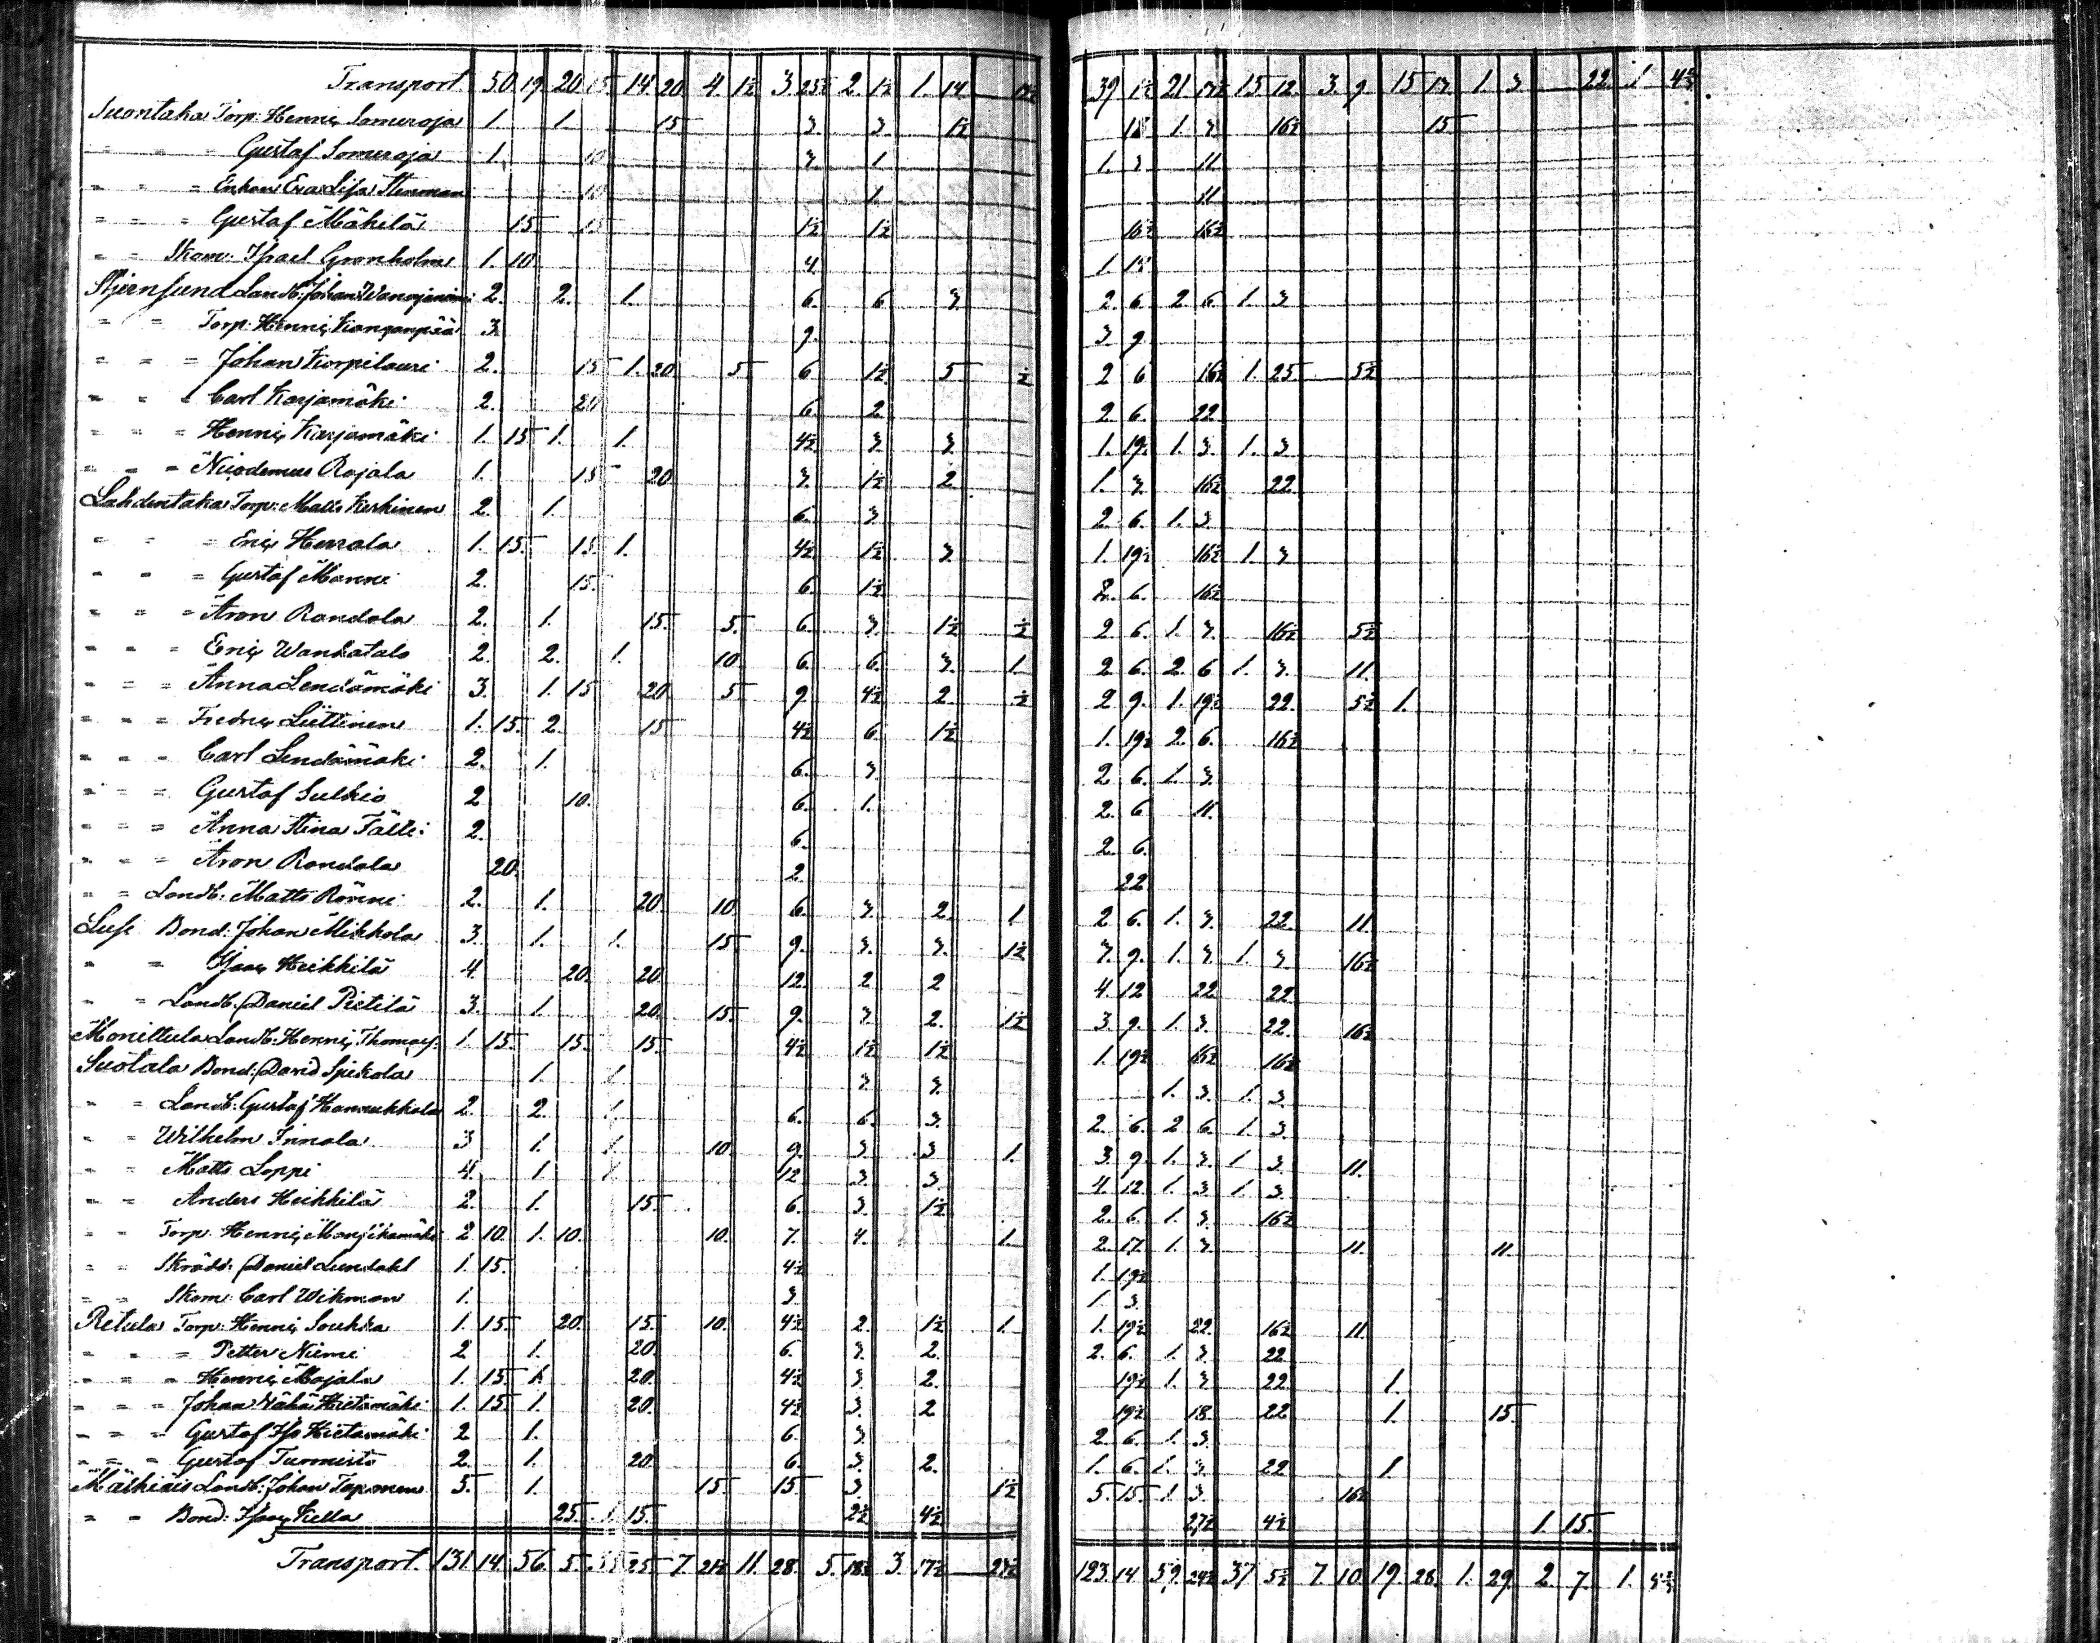 Transport 50 19 20 15 14 20 4 1½ 3 25½ 2 1½ 1 14 39 1½ 21 17½ 15 12 3 9 15 17 1 3 22 1
Suontaka Torp: Henric Someroja 1. 1. 15 3. 3. 1½ 18 1. 3 16½ 15
" " " Gustaf Someroja 1. 10 3. 1. 1. 3 11.
" " = Enkan Eva Lisa Stenman 10 1. 11
" " = Gustaf Mäkelä 15 15 1½ 1½ 16½ 16½
" " Skom: Isael Gronholm 1. 10 4. 1.
Stjernsund Landb: Johan 2. 2. 1. 6. 6 3. 2. 6. 2. 6 1. 3
" " Torp: Henric Kanganpää 3. 9. 3. 9.
" " = Johan Korpilauri 2. 15 1. 20 5 6 1½ 5 ½ 2 6 16½ 1. 25 5½
" " " Carl Karjamäki 2. 20 6. 2 2. 6. 22
" " = Henric Karjamäki 1. 15 1. 1. 4½ 3. 3. 1. 19½ 1. 3. 1. 3
" " = Nicodemus Rajala 1. 15 20 3. 1½ 2 1. 3. 16½ 22.
Lahdentaka Torp: Matts Kerkinen 2. 1. 6. 3. 2. 6. 1. 3.
" " = Eric Herrala 1. 15. 15. 1. 4½ 1½ 3. 1. 19½ 16½ 1. 3
" " = Gustaf Manni 2. 15. 6. 1½ 2. 6. 16½
" " = Aron Randala 2. 1. 15. 5. 6. 3. 1½ ½ 2 6. 1. 3. 16½ 5½
" " = Eric Wanhatalo 2. 2. 1. 10. 6. 6. 3. 1. 2 6. 2. 6 1. 3. 11.
" " = Anna Lendämäki 3. 1. 15 20 5 9. 4½ 2. ½ 2 9. 1. 19½ 22. 5½ 1.
" " = Fredric Liettinen 1. 15. 2. 15 4½ 6. 1½ 1. 19½ 2. 6. 16½
" " = Carl Lendämäki 2. 1. 6. 3 2 6. 1. 3.
" " = Gustaf Sulkio 2 10. 6. 1. 2. 6 11.
" " = Anna Stina Tälli 2. 6. 2 6.
" " = Aron Randala 20. 2. 22
" = Landb: Matts Rönni 2. 1. 20. 10 6. 3. 2. 1 2 6. 1. 3. 22. 11.
Lusi Bond: Johan Mikkola 3. 1. 1. 15 9. 3. 3. 1½ 3. 9. 1. 3. 1. 3 16½
" = Isaac Heikkilä 4. 20. 20. 12. 2 2 4. 12 22 22
" = Landb: Daniel Pietilä 3. 1. 20. 15. 9. 3. 2. 1½ 3. 9. 1. 3. 22. 16½
Monittula Landb: Henric Thomas: 1 15. 15. 15. 4½ 1½ 1½ 1. 19½ 16½ 16½
Suotala Bond: David Spikola 1. 1. 3 3. 1. 3. 1. 3.
" = Landb: Gustaf Hannukkala 2. 2. 1. 6. 6. 3. 2. 6. 2 6. 1 3.
" = Wilhelm Innala 3 1. 1. 10. 9. 3. 3 1. 3. 9. 1. 3. 1. 3 11.
" = Matts Loppi 4. 1. 1. 12 3. 3. 4. 12. 1. 3 1. 3.
" = Anders Heikkilä 2. 1. 15. 6. 3. 1½ 2. 6. 1. 3. 16½
" = Torp: Henric 2 10. 1. 10. 10. 7. 4. 1. 2. 17 1. 3 11. 11.
" = Skrädd: Daniel Lundahl 1. 15. 4½ 1. 19½
" = Skom: Carl Wikman 1. 3. 1. 3.
Retula Torp: Henric Soukka 1. 15. 20. 15. 10. 4½ 2. 1½ 1. 1. 19½ 22. 16½ 11.
" " = Petter Niemi 2. 1. 20. 6. 3. 2. 2. 6. 1. 3. 22
" " = Henric Majala 1. 15. 1. 20. 4½ 3. 2. 19½ 1. 3 22. 1.
" " = Johan Vähä Hietamäki 1. 15. 1. 20. 4½ 3. 2 19½ 18. 22 1. 15.
" " = Gustaf Iso Hietamäki 2 1. 6. 3. 2. 6. 1. 3.
" " = Gustaf Tuomisto 2. 1. 20. 6. 3. 2. 1. 6. 1. 3. 22 1.
Mälkiäis Landb: Johan 5. 1. 15. 15. 3. 1½ 5. 15. 1. 3. 16½
" = Bond: Isaac Kella 25. 1. 15. 2½ 4½ 27½ 4½ 1. 15.
Transport 131. 14. 56. 5. 25 7. 21½ 11. 28. 5. 18½ 3. 17½ 27½ 123. 14 59. 24½ 37 5½ 7. 10. 19 28. 1. 29. 2. 7. 1.